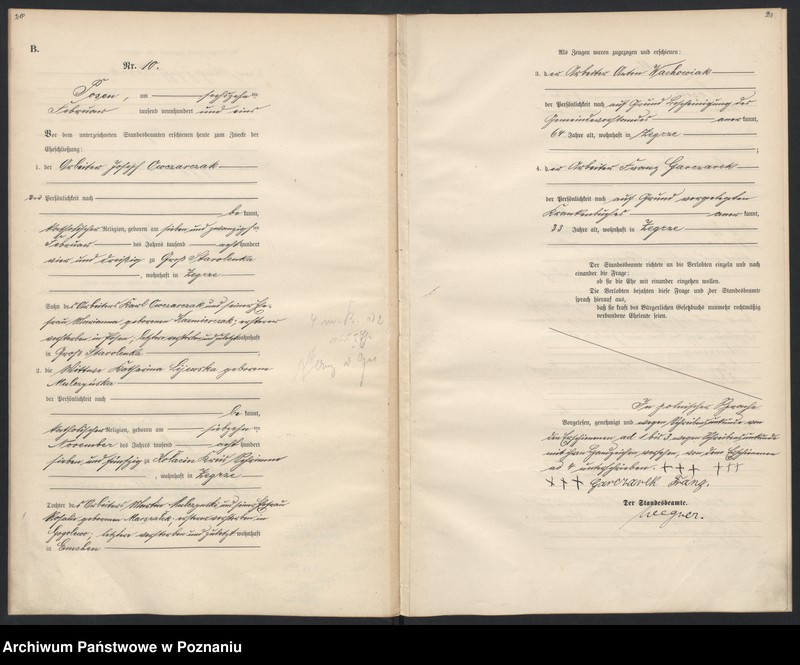 20
B.
Nr. 10.
Posen, am sechszehnten
Februar tausend neunhundert und eins
Vor dem unterzeichneten Standesbeamten erschienen heute zum Zwecke der
Eheschließung:
1. der Arbeiter Joseph Owczarczak
der Persönlichkeit nach
be kannt,
katholischer Religion, geboren am sieben und zwanzigsten
Februar des Jahres tausend acht hundert
vier und dreißig zu Groß Starolenka
, wohnhaft in Zegrze
Sohn des Arbeiters Karl Owczarczak und seiner Ehe-
frau Marianna geborenen Kazmierczak; ersterer
verstorben in Posen; letztere verstorben und zuletzt wohnhaft
in Groß Starolenka
2. die Wittwe Katharina Lijewska geborene
der Persönlichkeit nach
be kannt,
katholischer Religion, geboren am siebzehnten
November des Jahres tausend acht hundert
sieben und fünfzig zu Kreis Schrimm
, wohnhaft in Zegrze
Tochter des Arbeiters Martin und seiner Ehefrau
Rosalie geborenen Marszalek; ersterer verstorben in
letztere verstorben und zuletzt wohnhaft
in
21
Als Zeugen waren zugezogen und erschienen:
3. der Arbeiter Anton Wachowiak
der Persönlichkeit nach auf Grund Bescheinigung des
Gemeindevorstandes aner kannt,
64 Jahre alt, wohnhaft in Zegrze
;
4. der Arbeiter Franz Garczarek
der Persönlichkeit nach auf Grund vorgelegten
Krankenbuches aner kannt,
33 Jahre alt, wohnhaft in Zegrze
Der Standesbeamte richtete an die Verlobten einzeln und nach
einander die Frage:
ob sie die Ehe mit einander eingehen wollen.
Die Verlobten bejahten diese Frage und der Standesbeamte
sprach hierauf aus,
daß sie kraft des Bürgerlichen Gesetzbuchs nunmehr rechtmäßig
verbundene Eheleute seien.
In polnischer Sprache
Vorgelesen, genehmigt und wegen Schreibensunkunde von
den Erschienenen ad 1 bis 3 wegen Schreibensunkunde
mit ihren Handzeichen versehen, von dem Erschienenen
ad 4 unterschrieben. +++ +++
+++ Garczarek Franz.
Der Standesbeamte.
Archiwum Państwowe w Poznaniu